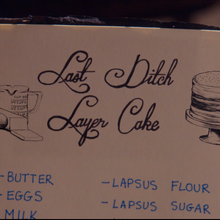 Last Ditch
Layer Cake
- BUTTER
- EGGS
MILK
- LAPSUS FLOUR
- LAPSUS SUGAR